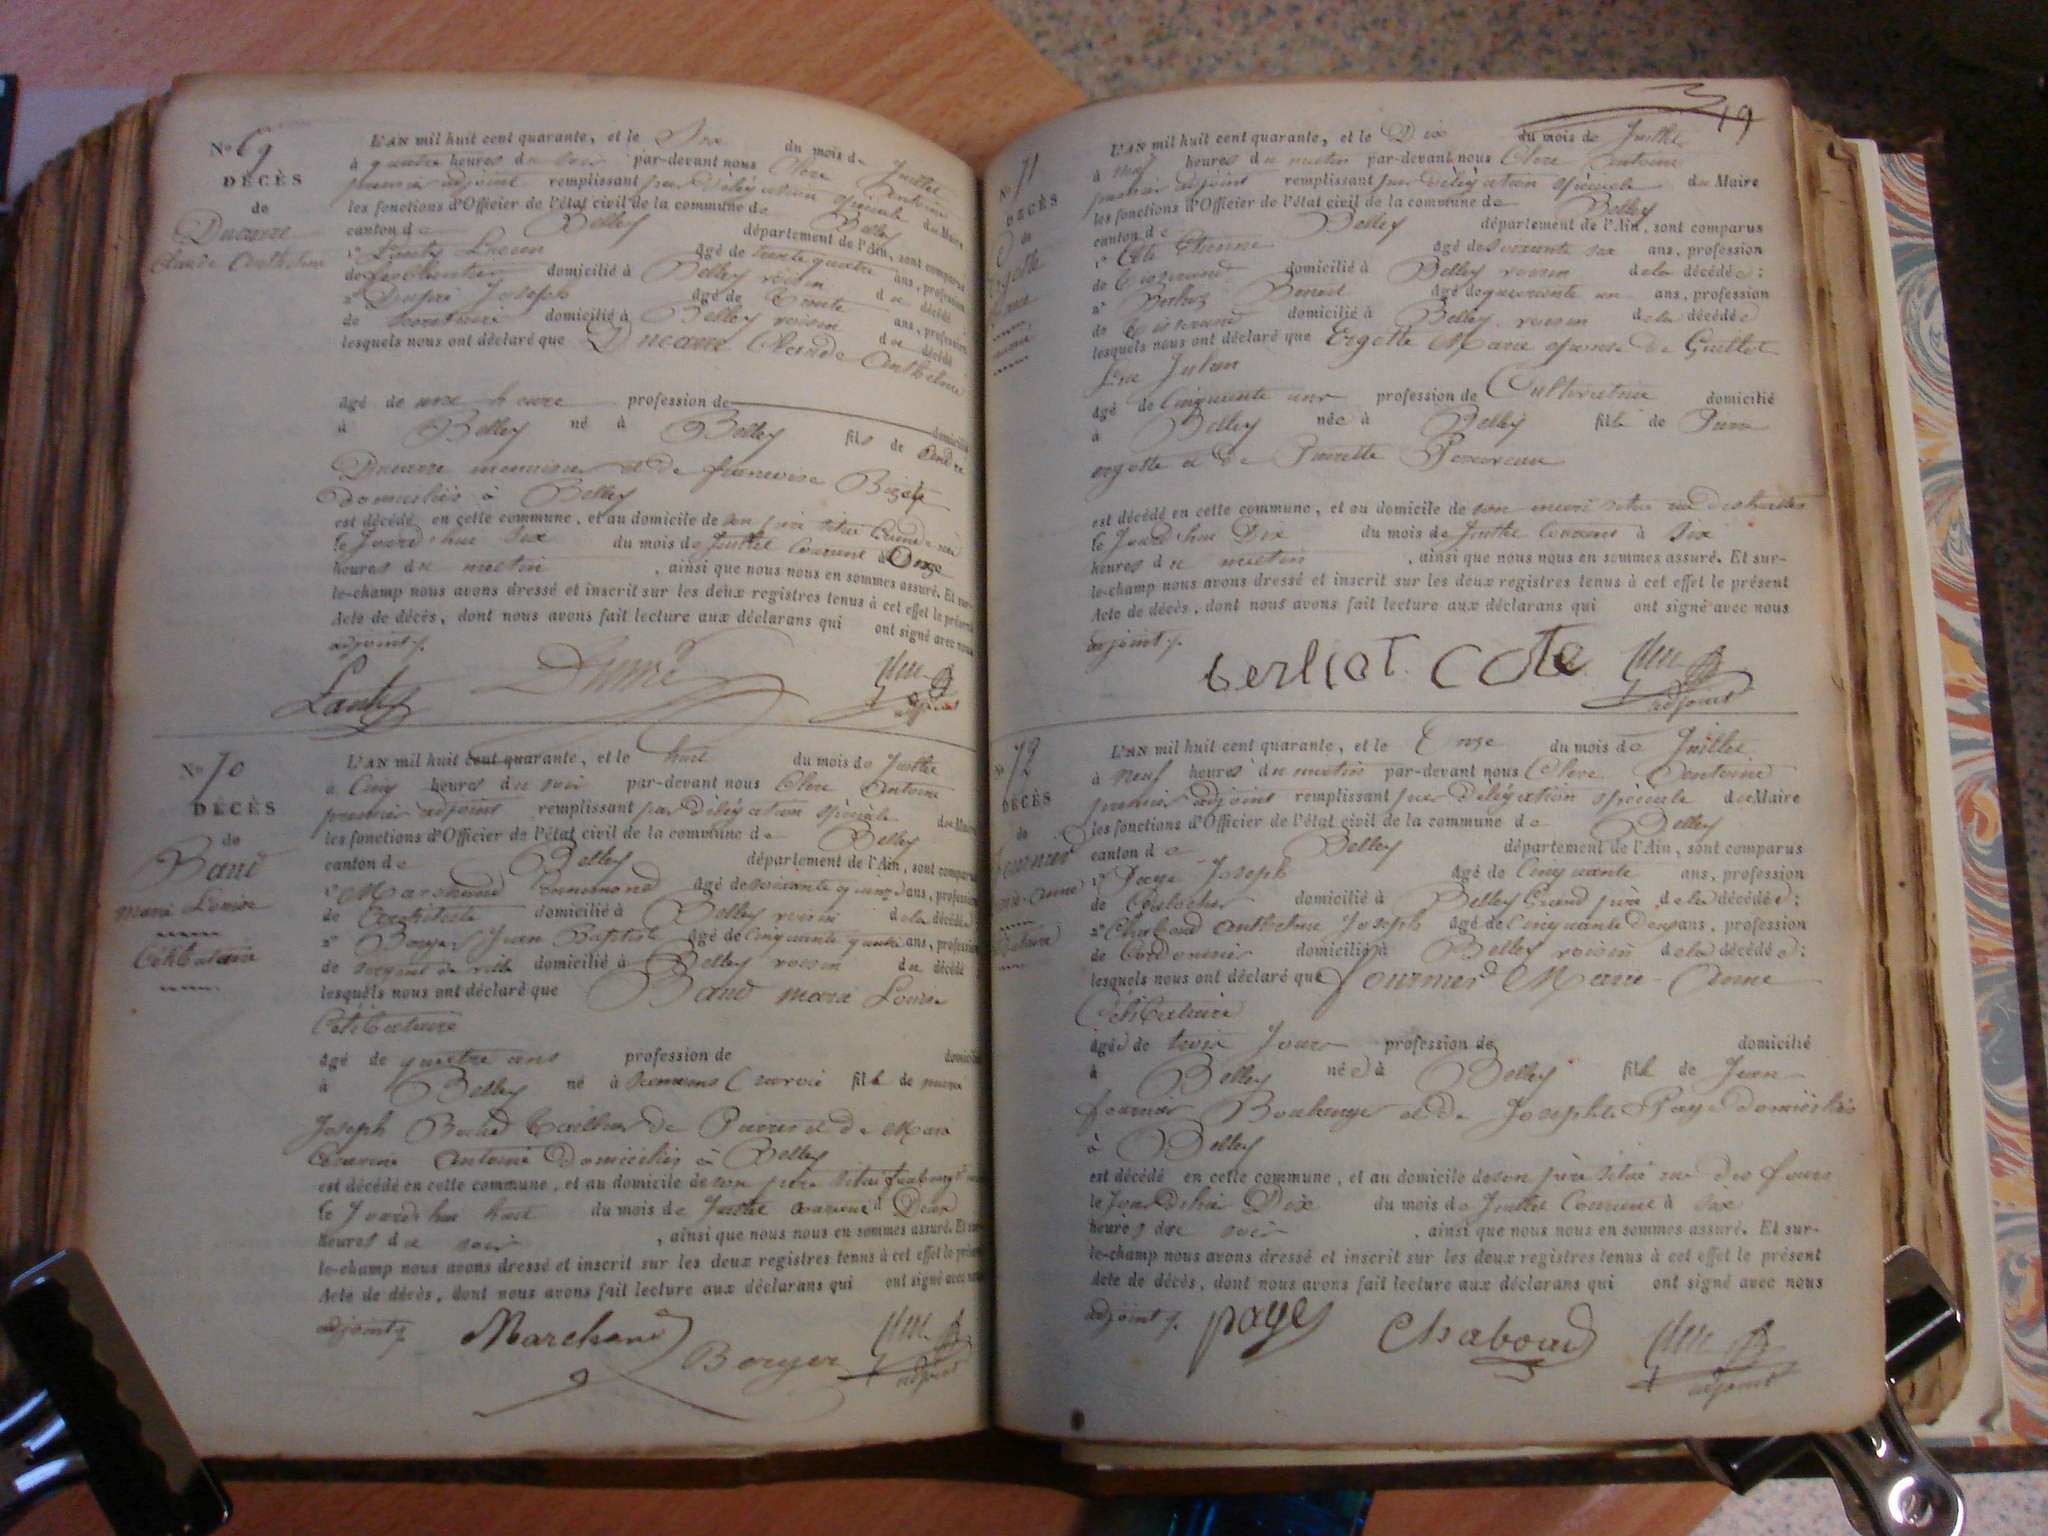 N° 69
DÉCÈS
de
Ducarre
Claude Anthelme
L'AN mil huit cent quarante, et le Six du mois de Juillet
à quatre heures du soir par-devant nous Antoine
premier adjoint remplissant par délégation spéciale du Maire
les fonctions d'Officier de l'état civil de la commune de Belley
canton de Belley département de l'Ain, sont comparus
1° agé de trente quatre ans, profession
de ferblantier domicilié à Belley voisin du décédé
2° Dupré Joseph agé de trente ans, profession
de secretaire domicilié à Belley voisin du décédé
lesquels nous ont déclaré que Ducarre Claude Anthelme
agé de une heure profession de domicilié
à Belley né à Belley fils de André
Ducarre menuisier et de françoise
domiciliés à Belley
est décédé en cette commune, et au domicile de son père situé Grande rue
le Jourd'hui Six du mois de Juillet Courant à Onze
heures du matin, ainsi que nous nous en sommes assuré. Et sur-
le-champ nous avons dressé et inscrit sur les deux registres tenus à cet effet le présent
Acte de décès, dont nous avons fait lecture aux déclarans qui ont signé avec nous
adjoint
adjoint
N° 70
DÉCÈS
de
Baud
Marie Louise
Célibataire
L'AN mil huit cent quarante, et le huit du mois de Juillet
à Cinq heures du soir par-devant nous Antoine
premier adjoint remplissant par délégation spéciale du Maire
les fonctions d'Officier de l'état civil de la commune de Belley
canton de Belley département de l'Ain, sont comparus
1° Marchand Ennemond agé de soixante quinze ans, profession
de Architecte domicilié à Belley voisin de la décédée
2° Boyer Jean Baptiste agé de Cinquante quatre ans, profession
de sergent de ville domicilié à Belley voisin du décédé
lesquels nous ont déclaré que Baud marie Louise
Célibataire
agé de quatre ans profession de domicilié
à Belley né à (savoie) fille de
Joseph Baud tailleur de Pierres et de Marie
Antoine domiciliés à Belley
est décédé en cette commune, et au domicile de son père situé faubourg
le Jourd'hui huit du mois de Juillet courant à Deux
heures du soir, ainsi que nous nous en sommes assuré. Et sur-
le-champ nous avons dressé et inscrit sur les deux registres tenus à cet effet le présent
Acte de décès, dont nous avons fait lecture aux déclarans qui ont signé avec nous
adjoint
Marchand Boyer
adjoint
49
N° 71
DÉCÈS
de
Ergotte
Marie
L'AN mil huit cent quarante, et le Dix du mois de Juillet
à neuf heures du matin par-devant nous Antoine
premier adjoint remplissant par délégation spéciale du Maire
les fonctions d'Officier de l'état civil de la commune de Belley
canton de Belley département de l'Ain, sont comparus
1° Cote Etienne agé de soixante six ans, profession
de tisserand domicilié à Belley voisin de la décédée:
2° Berliot Benoit agé de quarante un ans, profession
de tisserand domicilié à Belley voisin de la décédée
lesquels nous ont déclaré que Ergotte Marie épouse de Guillot
agé de Cinquante ans profession de Cultivatrice domicilié
à Belley née à Belley fille de Pierre
ergotte et de Pierrette
est décédé en cette commune, et au domicile de son mari situé rue
le Jourd'hui Dix du mois de Juillet Courant à Six
heures du matin, ainsi que nous nous en sommes assuré. Et sur-
le-champ nous avons dressé et inscrit sur les deux registres tenus à cet effet le présent
Acte de décès, dont nous avons fait lecture aux déclarans qui ont signé avec nous
adjoint
berliot Cote
adjoint
N° 72
DÉCÈS
de
Fournier
Marie-Anne
Célibataire
L'AN mil huit cent quarante, et le Onze du mois de Juillet
à neuf heures du matin par-devant nous Antoine
premier adjoint remplissant par délégation spéciale du Maire
les fonctions d'Officier de l'état civil de la commune de Belley
canton de Belley département de l'Ain, sont comparus
1° Paye Joseph agé de Cinquante ans, profession
de domicilié à Belley Grand père de la décédée:
2° Chaboud Anthelme Joseph agé de Cinquante Deux ans, profession
de Cordonnier domicilié à Belley voisin de la décédée:
lesquels nous ont déclaré que fournier Marie-Anne
Célibataire
agée de trois Jours profession de domicilié
à Belley née à Belley fille de Jean
fournier Boulanger et de Josephte Paye domiciliés
à Belley
est décédé en cette commune, et au domicile de son père situé rue des fours
le Jour d'hier Dix du mois de Juillet Courant à six
heures du soir, ainsi que nous nous en sommes assuré. Et sur-
le-champ nous avons dressé et inscrit sur les deux registres tenus à cet effet le présent
Acte de décès, dont nous avons fait lecture aux déclarans qui ont signé avec nous
adjoint
paye Chaboud
adjoint